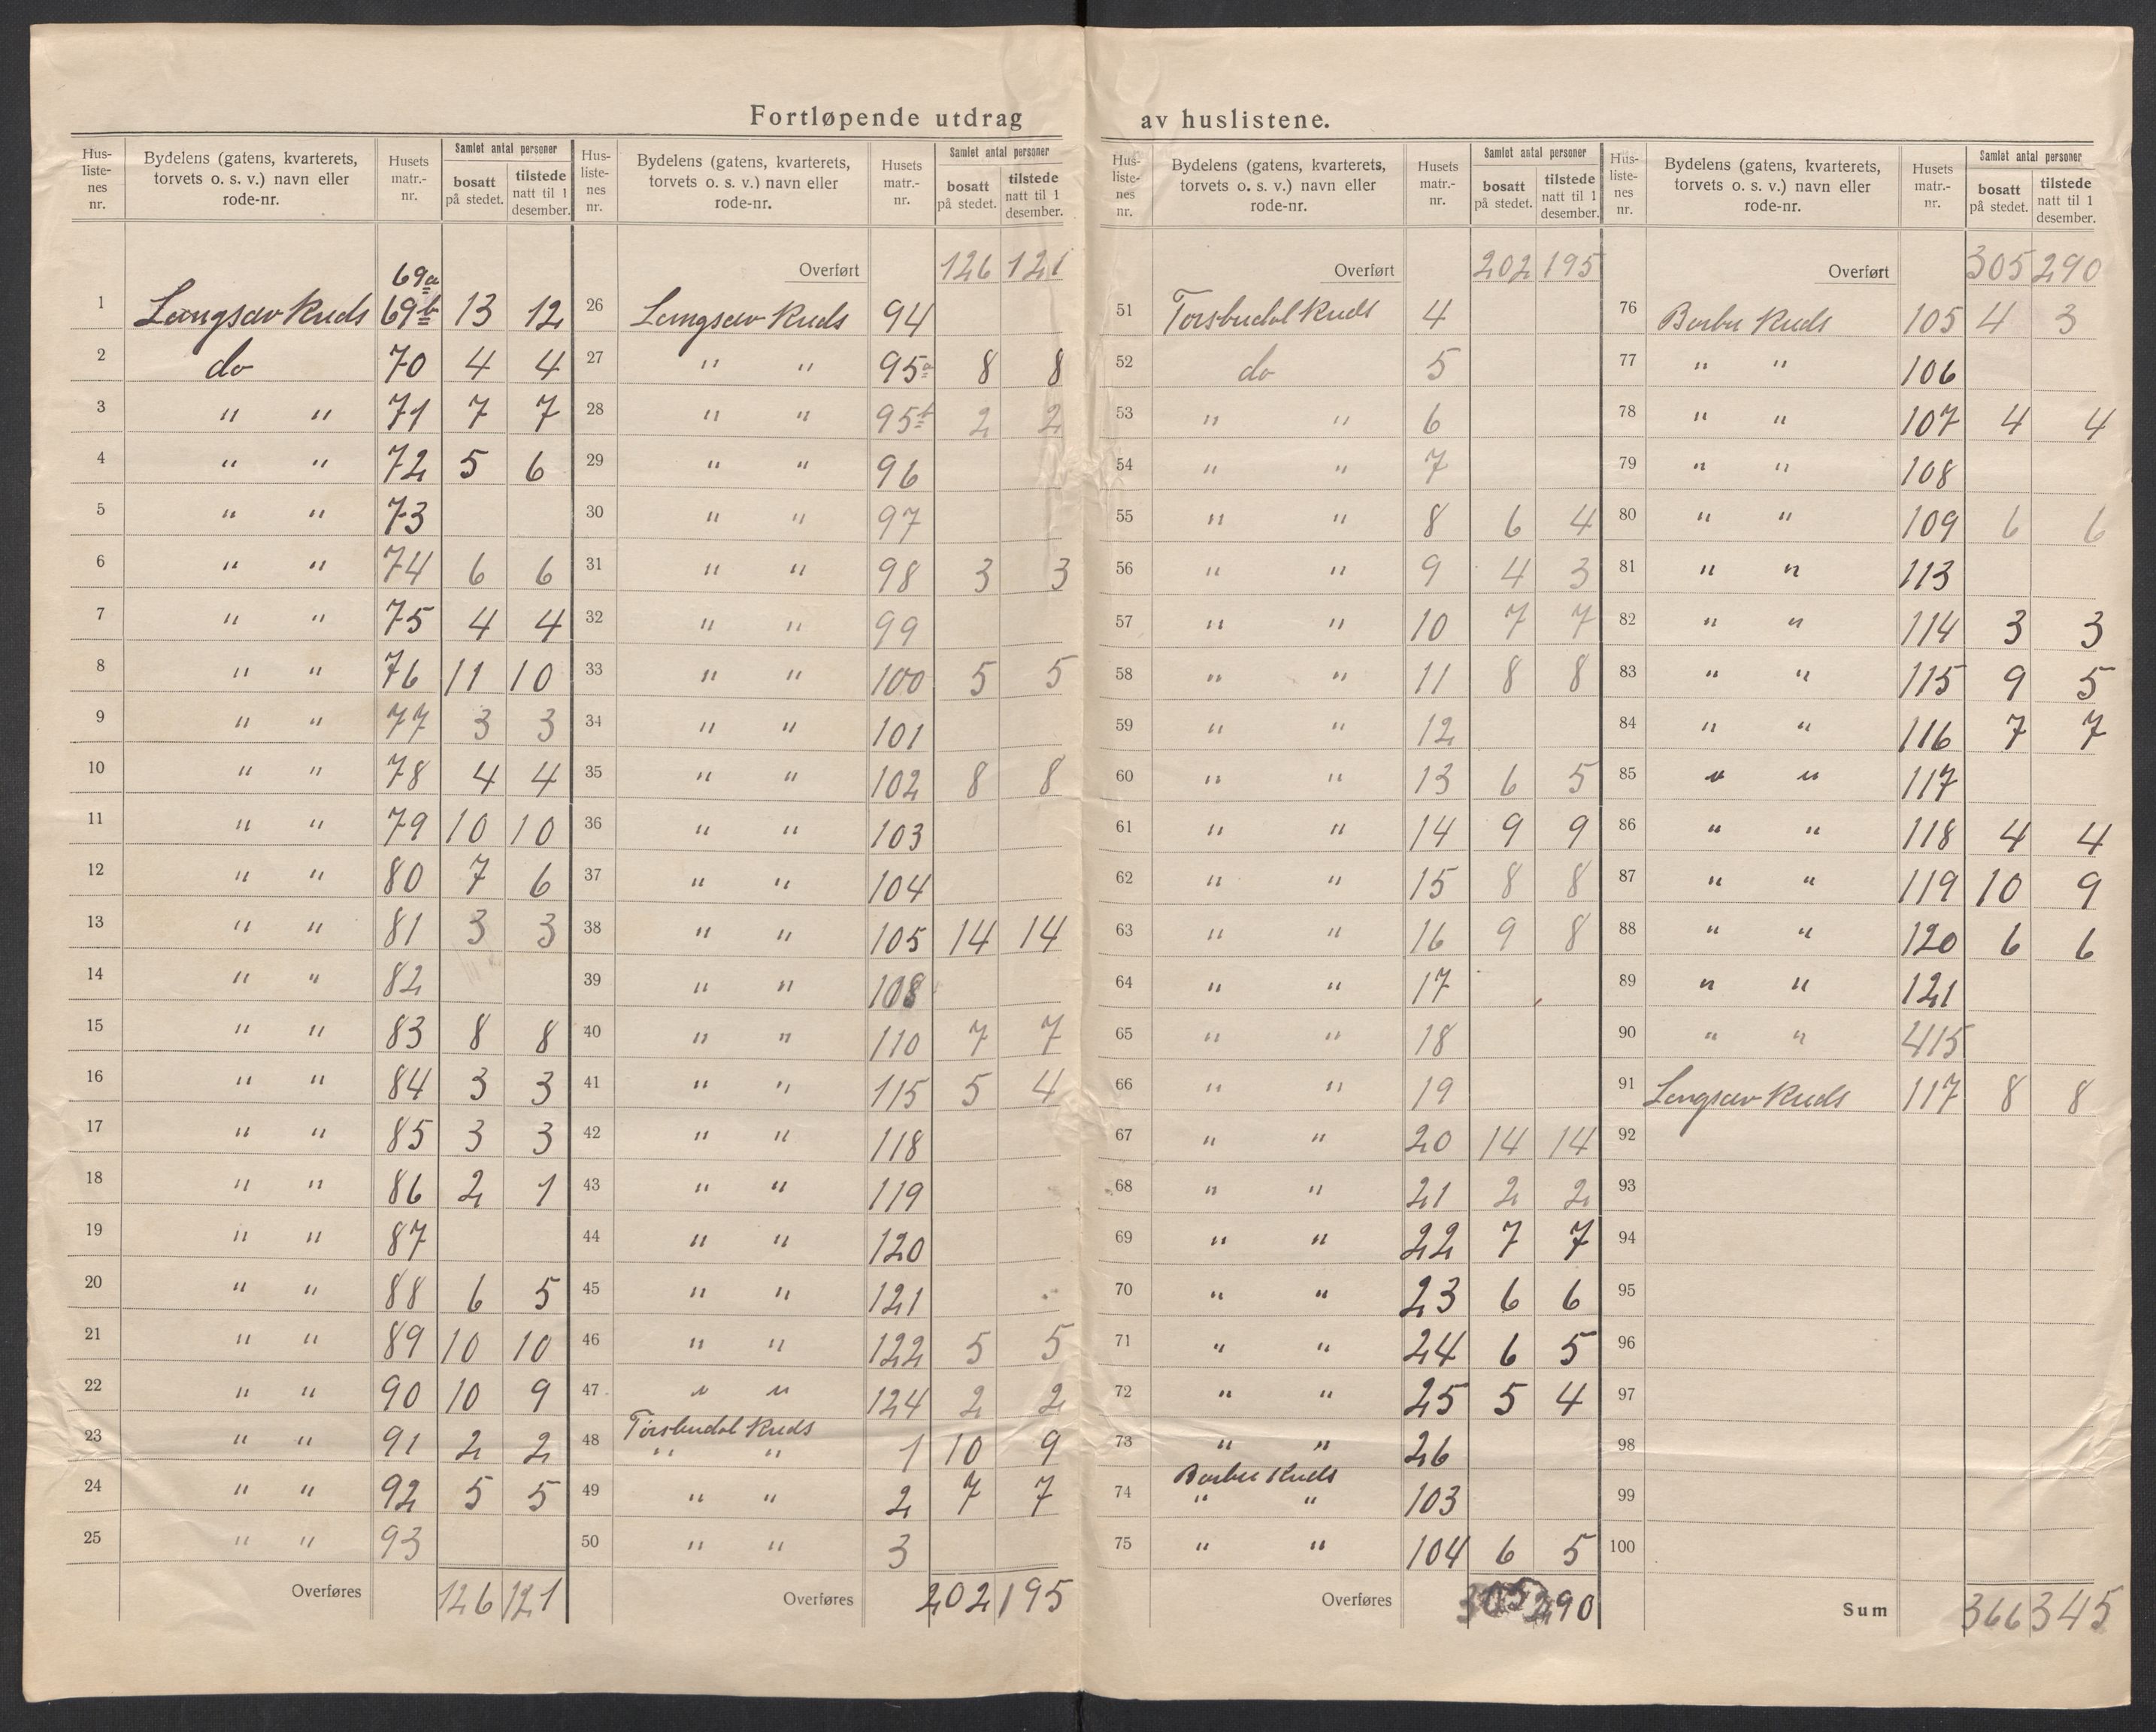 Fortløpende utdrag av huslistene.
Hus-liste-nes nr. | Bydelens (gatens, kvarterets, torvets o. s. v.) navn eller rode-nr. | Husets matr.-nr. | Samlet antal personer bosatt på stedet. | tilstede natt til 1 desember.
69a
1 Langsæv Kreds 69b 13 12
2 do 70 4 4
3 " " 71 7 7
4 " " 72 5 6
5 " " 73
6 " " 74 6 6
7 " " 75 4 4
8 " " 76 11 10
9 " " 77 3 3
10 " " 78 4 4
11 " " 79 10 10
12 " " 80 7 6
13 " " 81 3 3
14 " " 82
15 " " 83 8 8
16 " " 84 3 3
17 " " 85 3 3
18 " " 86 2 1
19 " " 87
20 " " 88 6 5
21 " " 89 10 10
22 " " 90 10 9
23 " " 91 2 2
24 " " 92 5 5
25 " " 93
Overføres 126 121
Hus-liste-nes nr. | Bydelens (gatens, kvarterets, torvets o. s. v.) navn eller rode-nr. | Husets matr.-nr. | Samlet antal personer bosatt på stedet. | tilstede natt til 1 desember.
Overført 126 121
26 Langsæv Kreds 94
27 " " 95a 8 8
28 " " 95b 2 2
29 " " 96
30 " " 97
31 " " 98 3 3
32 " " 99
33 " " 100 5 5
34 " " 101
35 " " 102 8 8
36 " " 103
37 " " 104
38 " " 105 14 14
39 " " 108
40 " " 110 7 7
41 " " 115 5 4
42 " " 118
43 " " 119
44 " " 120
45 " " 121
46 " " 122 5 5
47 " " 124 2 2
Torsbudal Kreds
48 " " 1 10 9
49 " " 2 7 7
50 " " 3
Overføres 202 195
Hus-liste-nes nr. | Bydelens (gatens, kvarterets, torvets o. s. v.) navn eller rode-nr. | Husets matr.-nr. | Samlet antal personer bosatt på stedet. | tilstede natt til 1 desember.
Overført 202 195
51 Torsbudal Kreds 4
52 do 5
53 " " 6
54 " " 7
55 " " 8 6 4
56 " " 9 4 3
57 " " 10 7 7
58 " " 11 8 8
59 " " 12
60 " " 13 6 5
61 " " 14 9 9
62 " " 15 8 8
63 " " 16 9 8
64 " " 17
65 " " 18
66 " " 19
67 " " 20 14 14
68 " " 21 2 2
69 " " 22 7 7
70 " " 23 6 6
71 " " 24 6 5
72 " " 25 5 4
73 " " 26
Barbu Kreds
74 " " 103
75 " " 104 6 5
Overføres 305 290
Hus-liste-nes nr. | Bydelens (gatens, kvarterets, torvets o. s. v.) navn eller rode-nr. | Husets matr.-nr. | Samlet antal personer bosatt på stedet. | tilstede natt til 1 desember.
Overført 305 290
76 Barbu Kreds 105 4 3
77 " " 106
78 " " 107 4 4
79 " " 108
80 " " 109 6 6
81 " " 113
82 " " 114 3 3
83 " " 115 9 5
84 " " 116 7 7
85 " " 117
86 " " 118 4 4
87 " " 119 10 9
88 " " 120 6 6
89 " " 121
90 " " 415
91 Langsæv Kreds 117 8 8
92
93
94
95
96
97
98
99
100
Sum 366 345